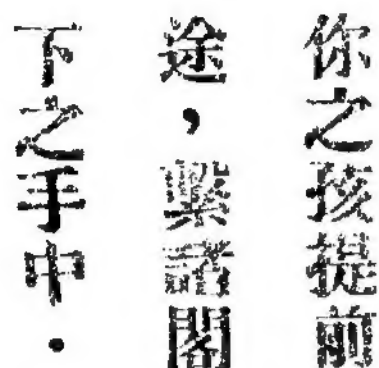 你之孩提前
途，繫諸閣
下之手中．